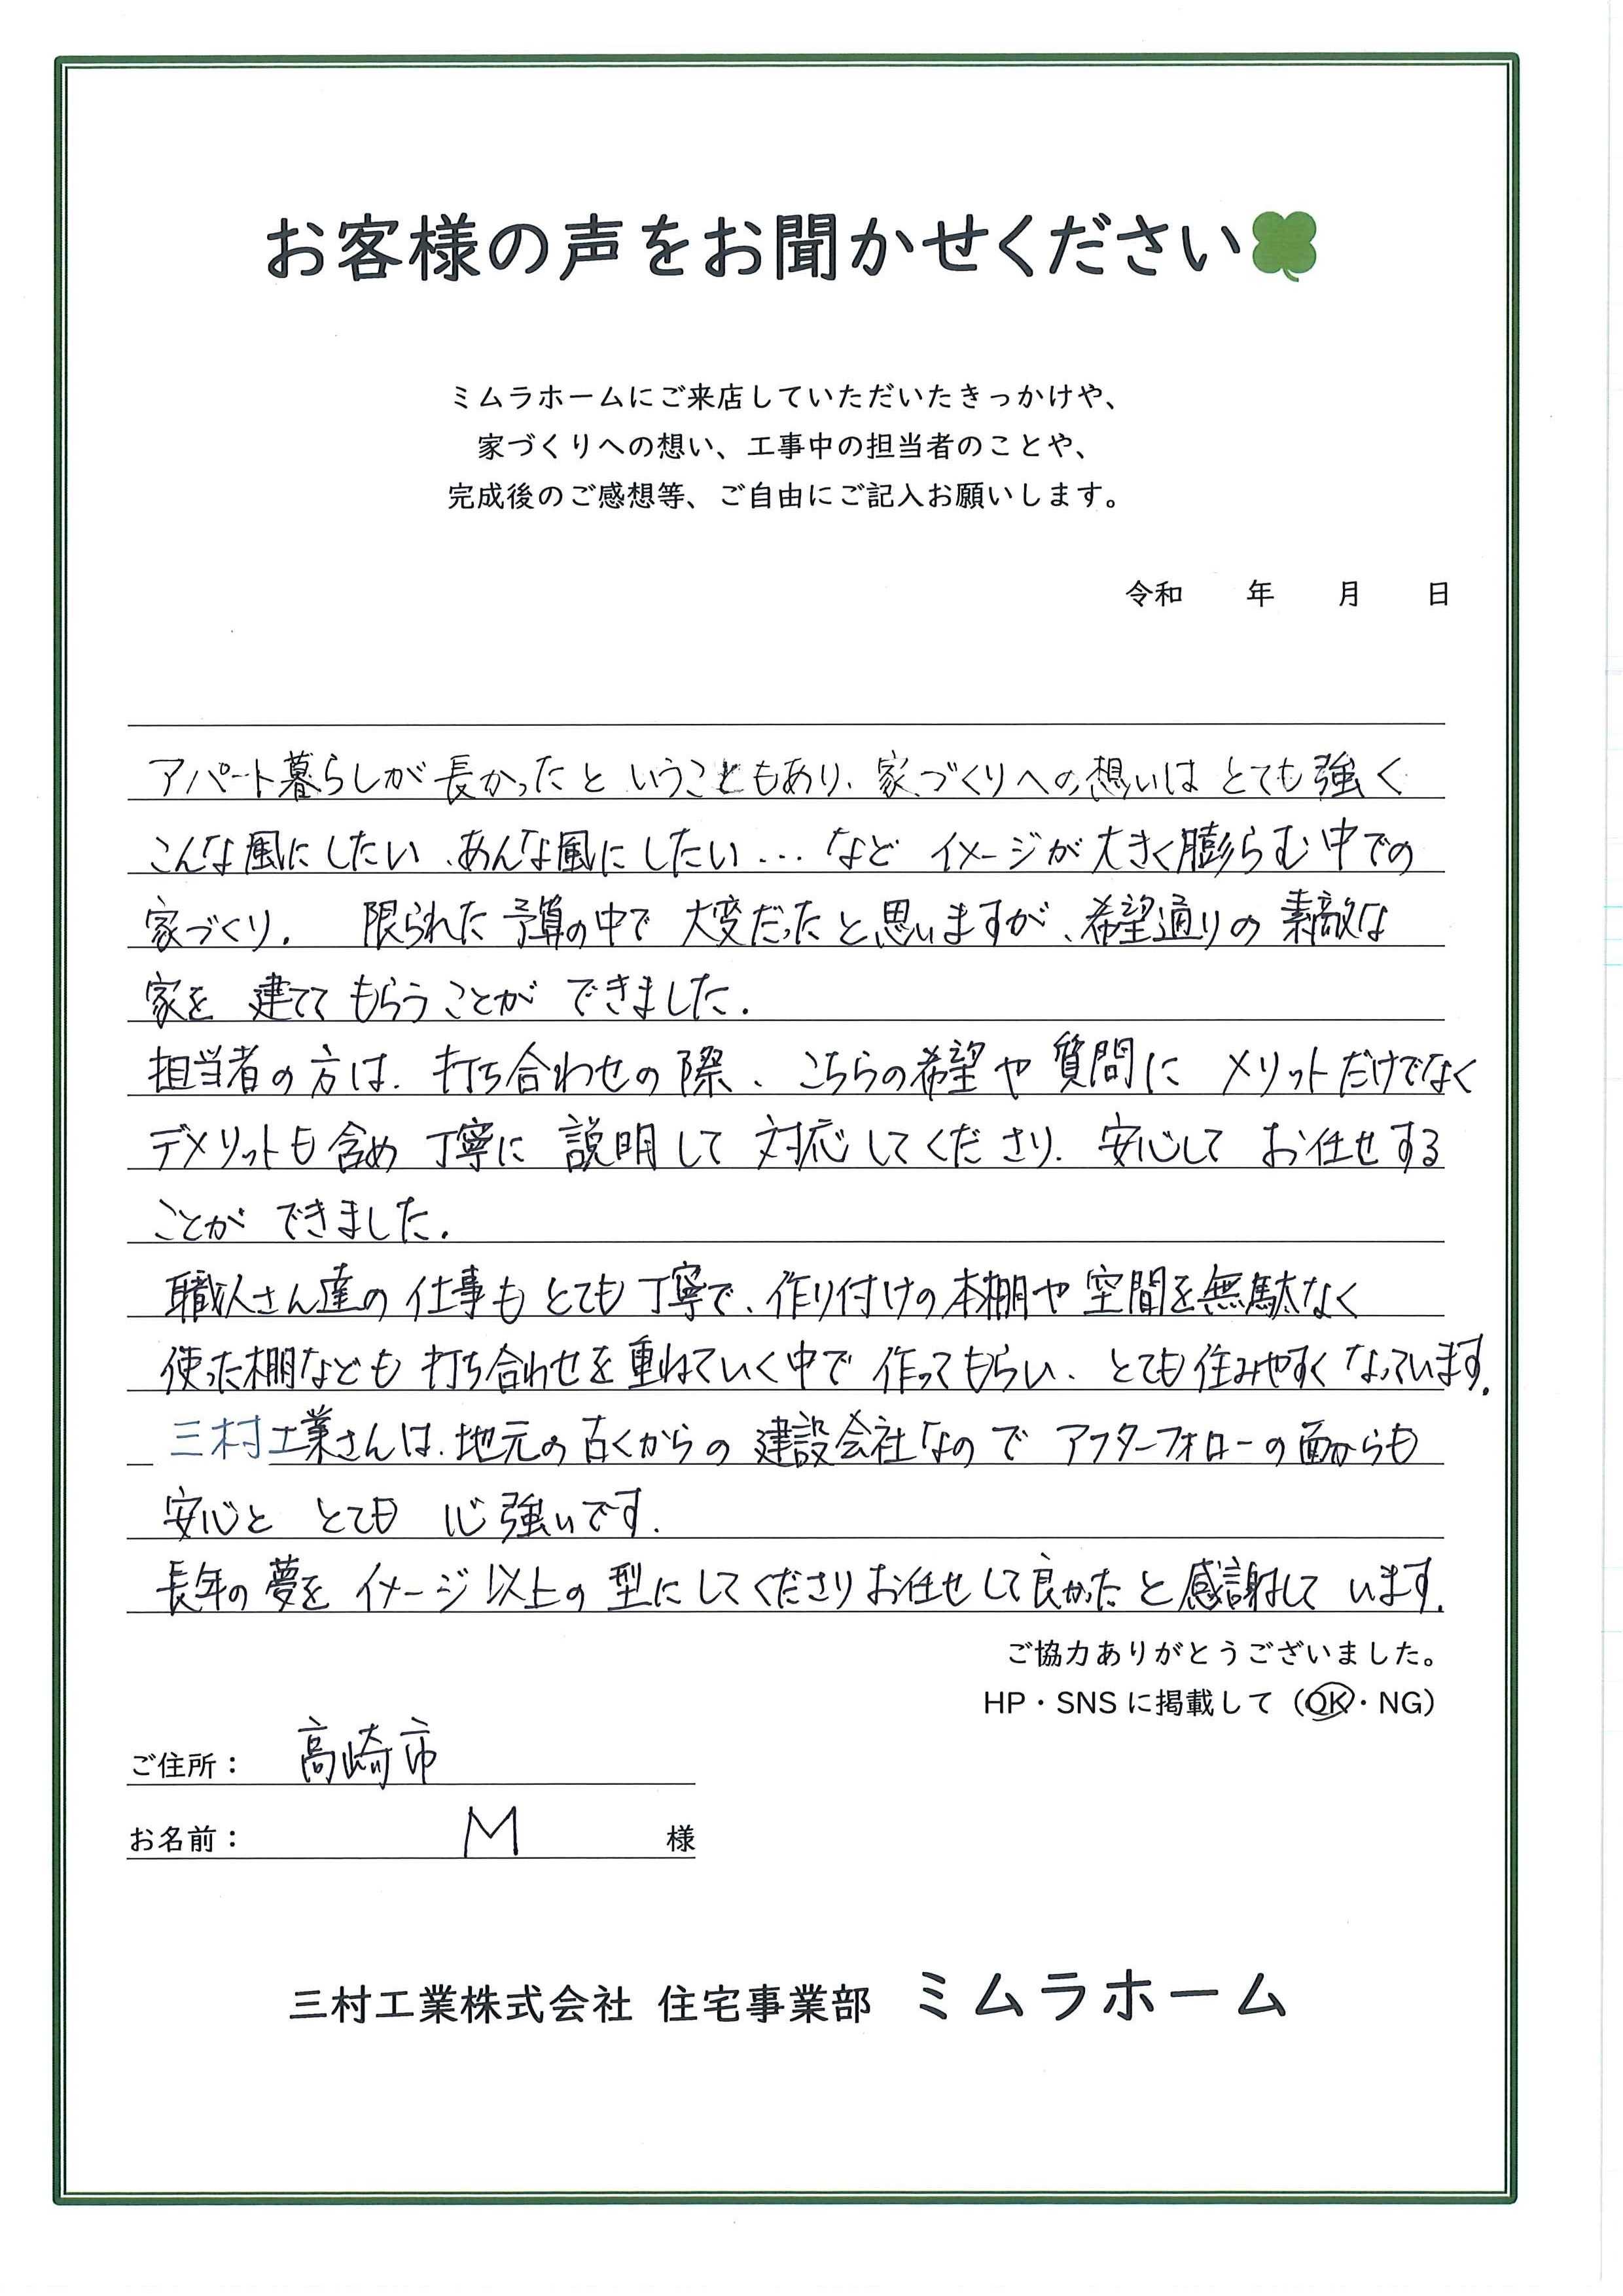 お客様の声をお聞かせください
ミムラホームにご来店していただいたきっかけや、
家づくりへの想い、工事中の担当者のことや、
完成後のご感想等、ご自由にご記入お願いします。
令和 年 月 日
アパート暮らしが長かったということもあり、家づくりへの想いはとても強く
こんな風にしたい、あんな風にしたい…などイメージが大きく膨らむ中での
家づくり。 限られた予算の中で大変だったと思いますが、希望通りの素敵な
家を建ててもらうことができました。
担当者の方は、打ち合わせの際、こちらの希望や質問にメリットだけでなく
デメリットも含め丁寧に説明して対応してくださり、安心してお任せする
ことができました。
職人さん達の仕事もとても丁寧で、作り付けの本棚や空間を無駄なく
使った棚なども打ち合わせを重ねていく中で作ってもらい、とても住みやすくなっています。
三村工業さんは、地元の古くからの建設会社なのでアフターフォローの面からも
安心ととても心強いです。
長年の夢をイメージ以上の型にしてくださりお任せして良かったと感謝しています。
ご協力ありがとうございました。
HP・SNSに掲載して（OK・NG）
ご住所： 高崎市
お名前： M 様
三村工業株式会社 住宅事業部 ミムラホーム